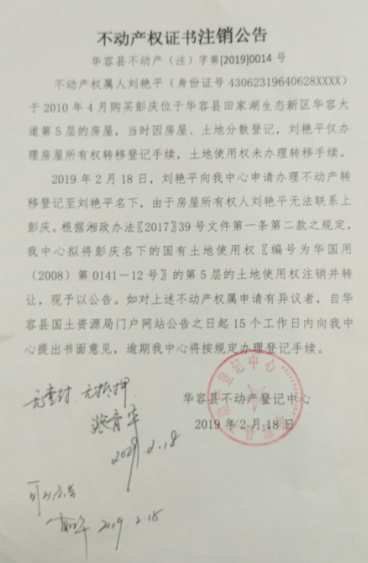 不动产权证书注销公告
华容县不动产（注）字第[2019]0014 号
不动产权属人刘艳平（身份证号 43062319640628XXXX）
于 2010 年 4 月购买彭庆位于华容县田家湖生态新区华容大
道第 5 层的房屋，当时因房屋、土地分散登记，刘艳平仅办
理房屋所有权转移登记手续，土地使用权未办理转移手续。
2019 年 2 月 18 日，刘艳平向我中心申请办理不动产转
移登记至刘艳平名下，由于房屋所有权人刘艳平无法联系上
彭庆。根据湘政办法〖2017〗39 号文件第一条第二款之规定，
我中心拟将彭庆名下的国有土地使用权〖编号为华国用
（2008）第 0141—12 号〗的第 5 层的土地使用权注销并转
让，现予以公告。如对上述不动产权属申请有异议者，自华
容县国土资源局门户网站公告之日起 15 个工作日内向我中
心提出书面意见，逾期我中心将按规定办理登记手续。
无查封 无抵押
华容县不动产登记中心
2019 年 2 月 18 日
2019.2.18
可以公告
2019.2.18